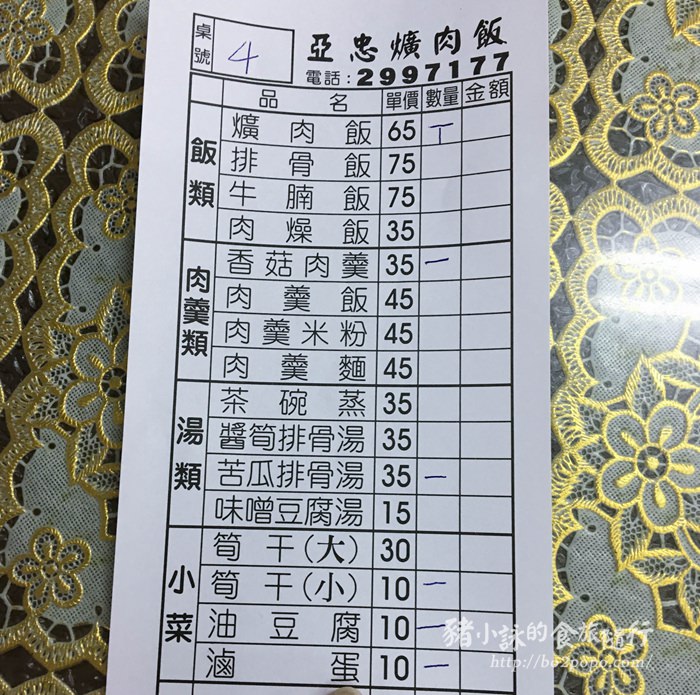 桌號 4 亞忠爌肉飯
電話：2997177
品名 單價 數量 金額
飯類
爌肉飯 65 丅
排骨飯 75
牛腩飯 75
肉燥飯 35
肉羹類
香菇肉羹 35 一
肉羹飯 45
肉羹米粉 45
肉羹麵 45
湯類
茶碗蒸 35
醬筍排骨湯 35
苦瓜排骨湯 35 一
味噌豆腐湯 15
小菜
筍干(大) 30
筍干(小) 10 一
油豆腐 10 一
滷蛋 10 一
豬小詠的食旅遊行
http://bc2popo.com/